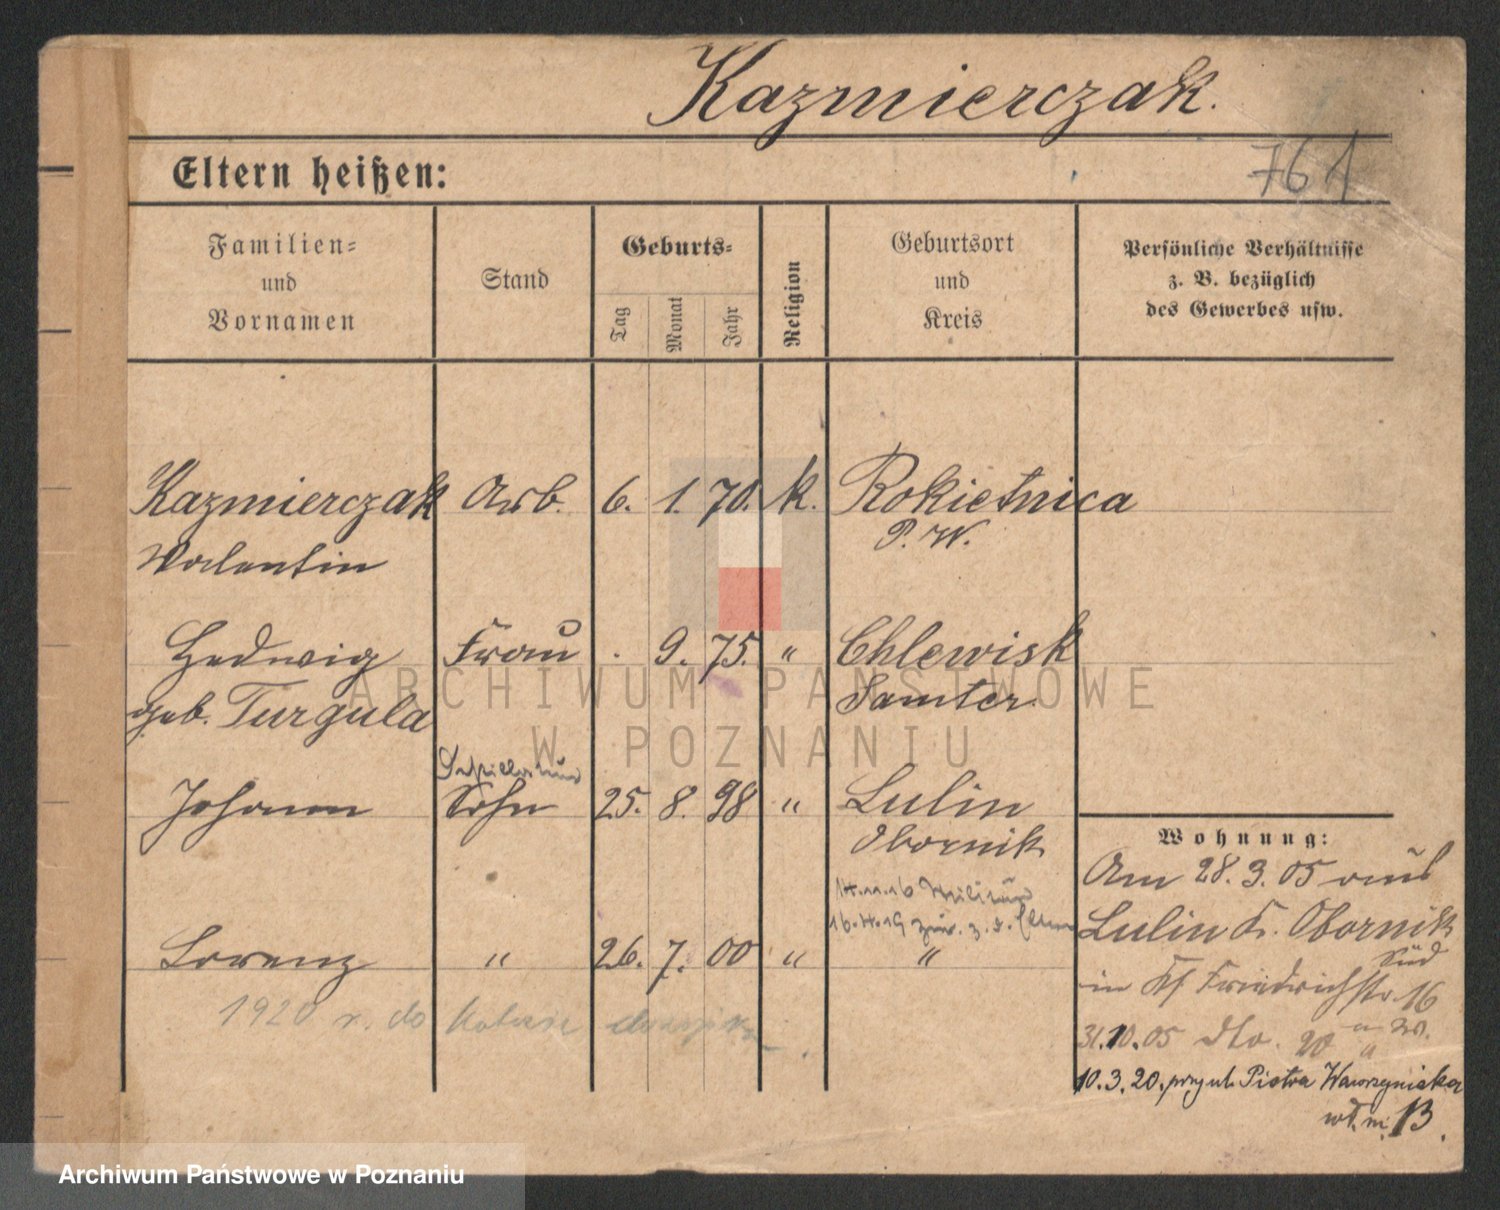 Kazmierczak.
Eltern heißen:
761
Familien-
und
Vornamen
Stand
Geburts-
Tag
Monat
Jahr
Religion
Geburtsort
und
Kreis
Persönliche Verhältnisse
z. B. bezüglich
des Gewerbes usw.
Kazmierczak Arb. 6. 1. 70. k. Rokietnica
Valentin P. W.
Hedwig Frau . 9. 75. " Chlewisk
geb. Turgula Samter
Johann Sohn 25. 8. 98 " Lulin
Obornik
14.11.16 Militär
16.4.19 zur. z. d. Eltern
Lorenz " 26. 7. 00 " "
1920 r. do
Wohnung:
Am 28. 3. 05 aus
Lulin K. Obornik
in Friedrichstr. 16
Süd
31.10.05 dto. 20
10.3.20. przy ul. Piotra Wawrzyniaka
13.
ARCHIWUM PAŃSTWOWE
W POZNANIU
Archiwum Państwowe w Poznaniu